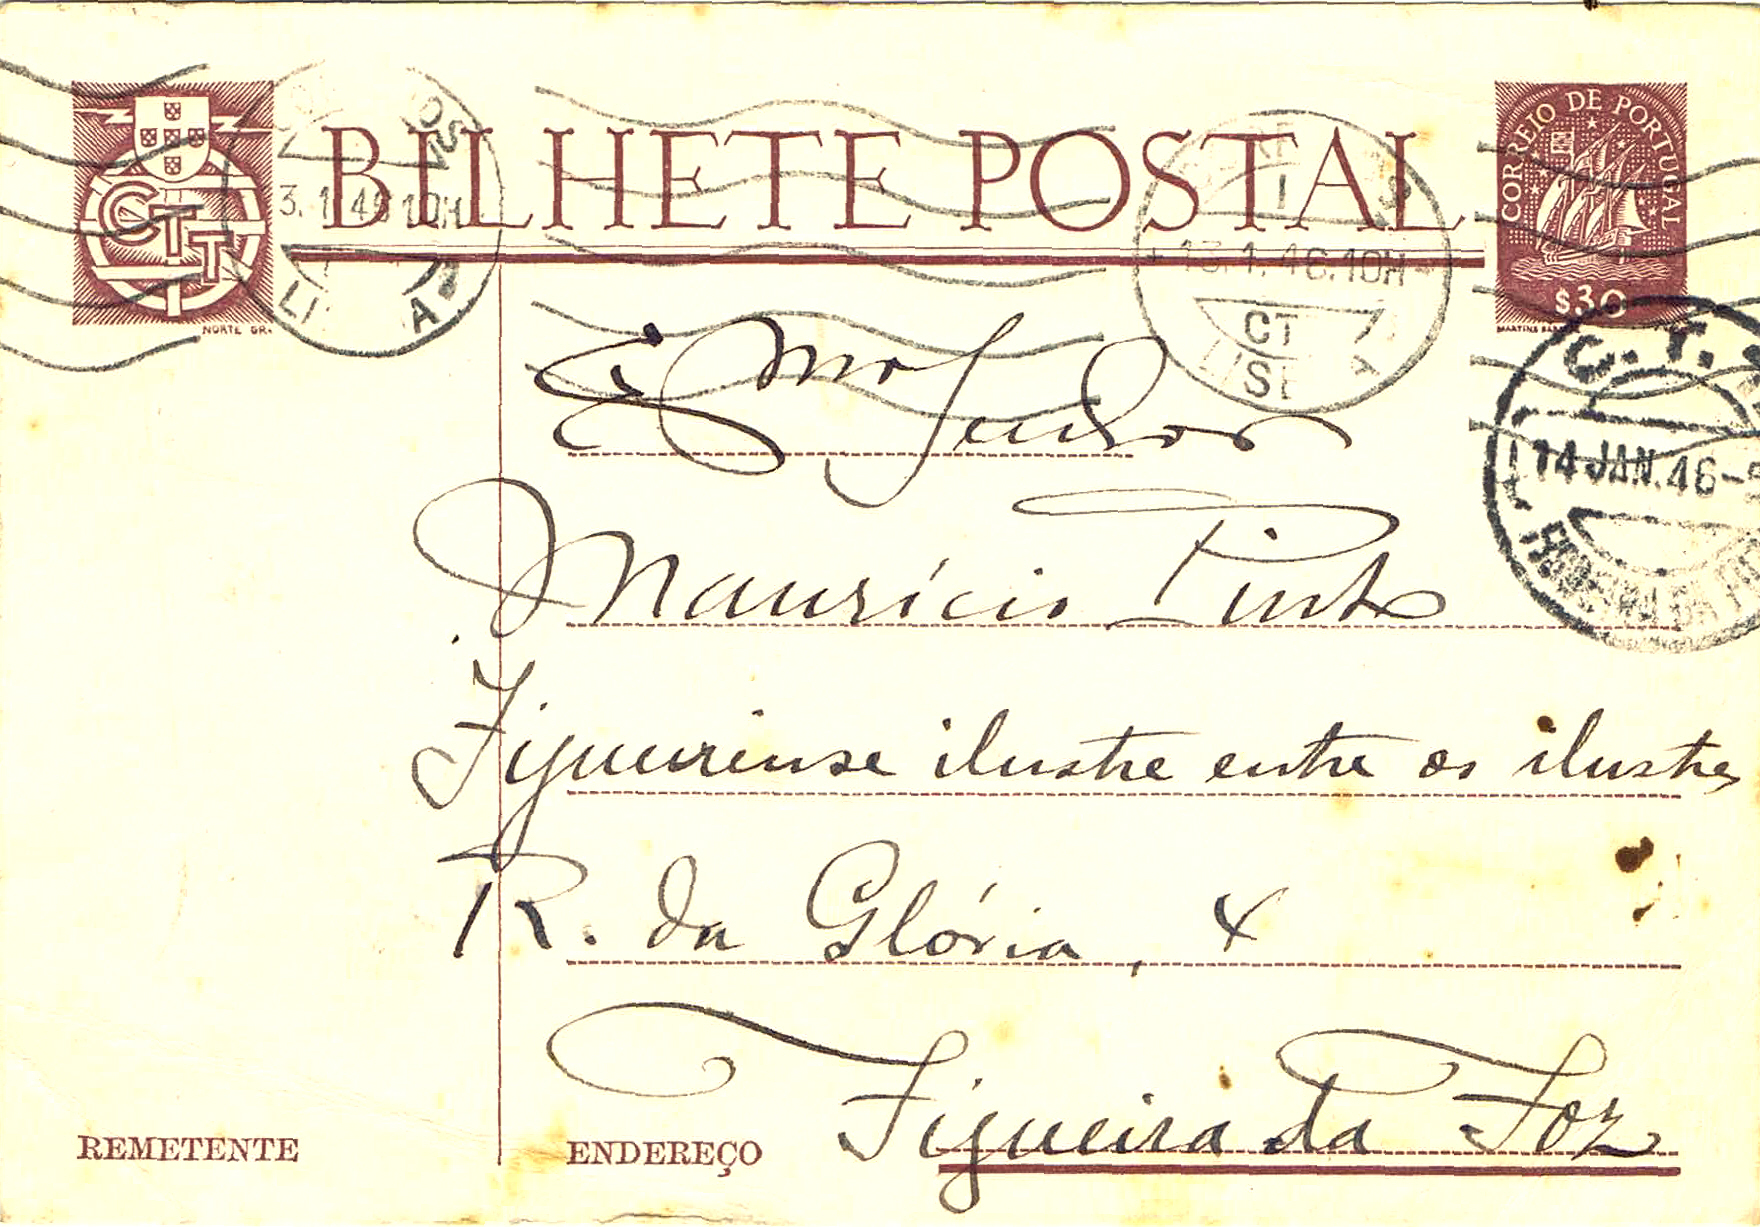 BILHETE POSTAL
CTT
NORTE GR.
3.1.46 10H
LI A
CORREIO DE PORTUGAL
$30
MARTINS
13.1.46.10H
CT
LIS A
C. T.
14 JAN. 46
FIGUEIRA DA
Exmo Senhor
Maurício Pinto
Figueirense ilustre entre os ilustres
R. da Glória, 4
Figueira da Foz
REMETENTE
ENDEREÇO